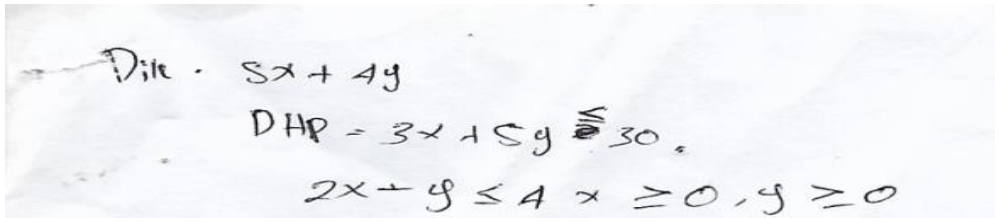 Dik. 5x + 4y
DHP = 3x + 5y ≤ 30.
2x + y ≤ 4 x ≥ 0, y ≥ 0